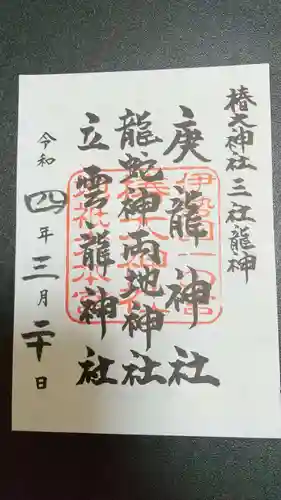 椿大神社三社龍神
庚龍神社
龍蛇神両地神社
立雲龍神社
令和四年三月二十日